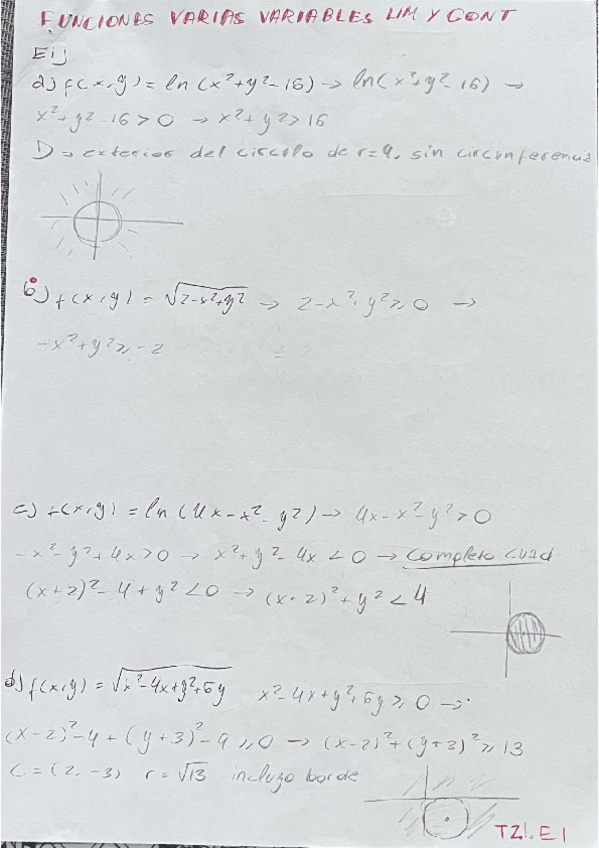 FUNCIONES VARIAS VARIABLES LIM Y CONT
Ej
a) f(x,y) = ln(x²+y²-16) → ln(x²+y²-16) →
x²+y²-16>0 → x²+y²>16
D → exterior del circulo de r=4, sin circunferencia
b) f(x,y) = √2-x²+y² → 2-x²+y²≥0 →
-x²+y²≥-2
c) f(x,y) = ln(4x-x²-y²) → 4x-x²-y²>0
-x²-y²+4x>0 → x²+y²-4x<0 → completo cuad
(x+2)²-4+y²<0 → (x-2)²+y²<4
d) f(x,y) = √x²-4x+y²+6y x²-4x+y²+6y≥0 →
(x-2)²-4+(y+3)²-9≥0 → (x-2)²+(y+3)²≥13
C=(2,-3) r=√13 incluzo borde
TZ1.E1